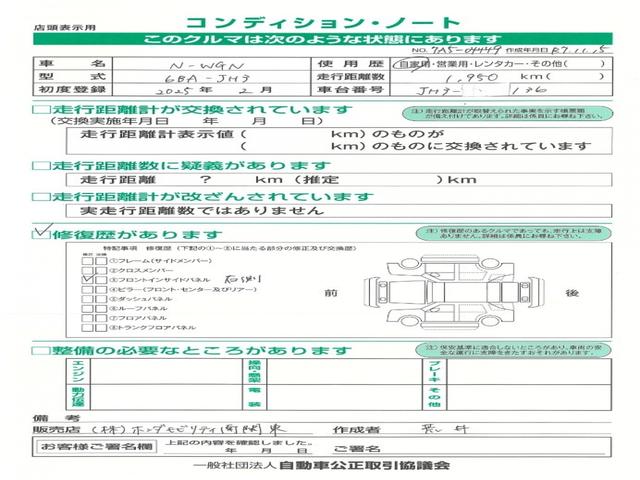 店頭表示用
コンディション・ノート
このクルマは次のような状態にあります
NO. 7A5-04449 作成年月日 R7.11.15
車名 N-WGN 使用歴 自家用・営業用・レンタカー・その他( )
型式 6BA-JH3 走行距離数 1,950 km( )
初度登録 2025年 2月 車台番号 JH3- 136
走行距離計が交換されています
(交換実施年月日 年 月 日)
注)走行距離計が取替えられた事実を示す帳票類が備え付けてあります。詳細は係員にお尋ね下さい。
走行距離計表示値( km)のものが
( km)のものに交換されています
走行距離数に疑義があります
走行距離 ? km(推定 )km
走行距離計が改ざんされています
実走行距離数ではありません
修復歴があります
注)修復歴のあるクルマであっても、走行上は支障ありません。詳細は係員にお尋ね下さい。
特記事項 修復歴(下記の①~⑧に当たる部分の修正及び交換歴)
修正 交換
①フレーム(サイドメンバー)
②クロスメンバー
③フロントインサイドパネル 右側
④ピラー(フロント・センター及びリアー)
⑤ダッシュパネル
⑥ルーフパネル
⑦フロアパネル
⑧トランクフロアパネル
前
後
整備の必要なところがあります
注)保安基準に適合しないところがあり、車両の安全な運行に支障をきたすおそれがあります。
エンジン
操向・懸架
ブレーキ
動力伝達
電装
その他
備考
販売店 (株)ホンダモビリティ南関東 作成者 荒井
お客様ご署名欄
上記の内容を確認しました。
年 月 日 ご署名
一般社団法人 自動車公正取引協議会